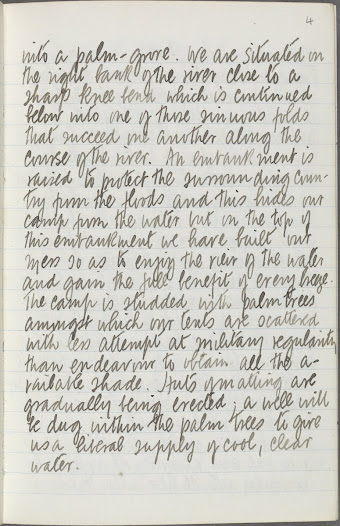 4
into a palm-grove. We are situated on
the right bank of the river close to a
sharp knee bend which is continued
below into one of those sinuous folds
that succeed one another along the
course of the river. An embankment is
raised to protect the surrounding coun-
try from the floods and this hides our
camp from the water but on the top of
this embankment we have built our
mess so as to enjoy the view of the water
and gain the full benefit of every breeze.
The camp is studded with palm trees
amongst which our tents are scattered
with less attempt at military regularity
than endeavour to obtain all the a-
vailable shade. Huts of matting are
gradually being erected; a well will
be dug within the palm trees to give
us a liberal supply of cool, clear
water.